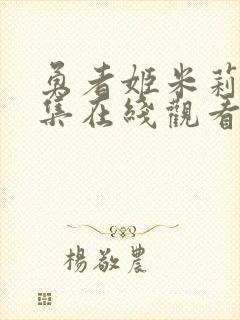 勇者姬米莉
集在綫觀看
楊敬農